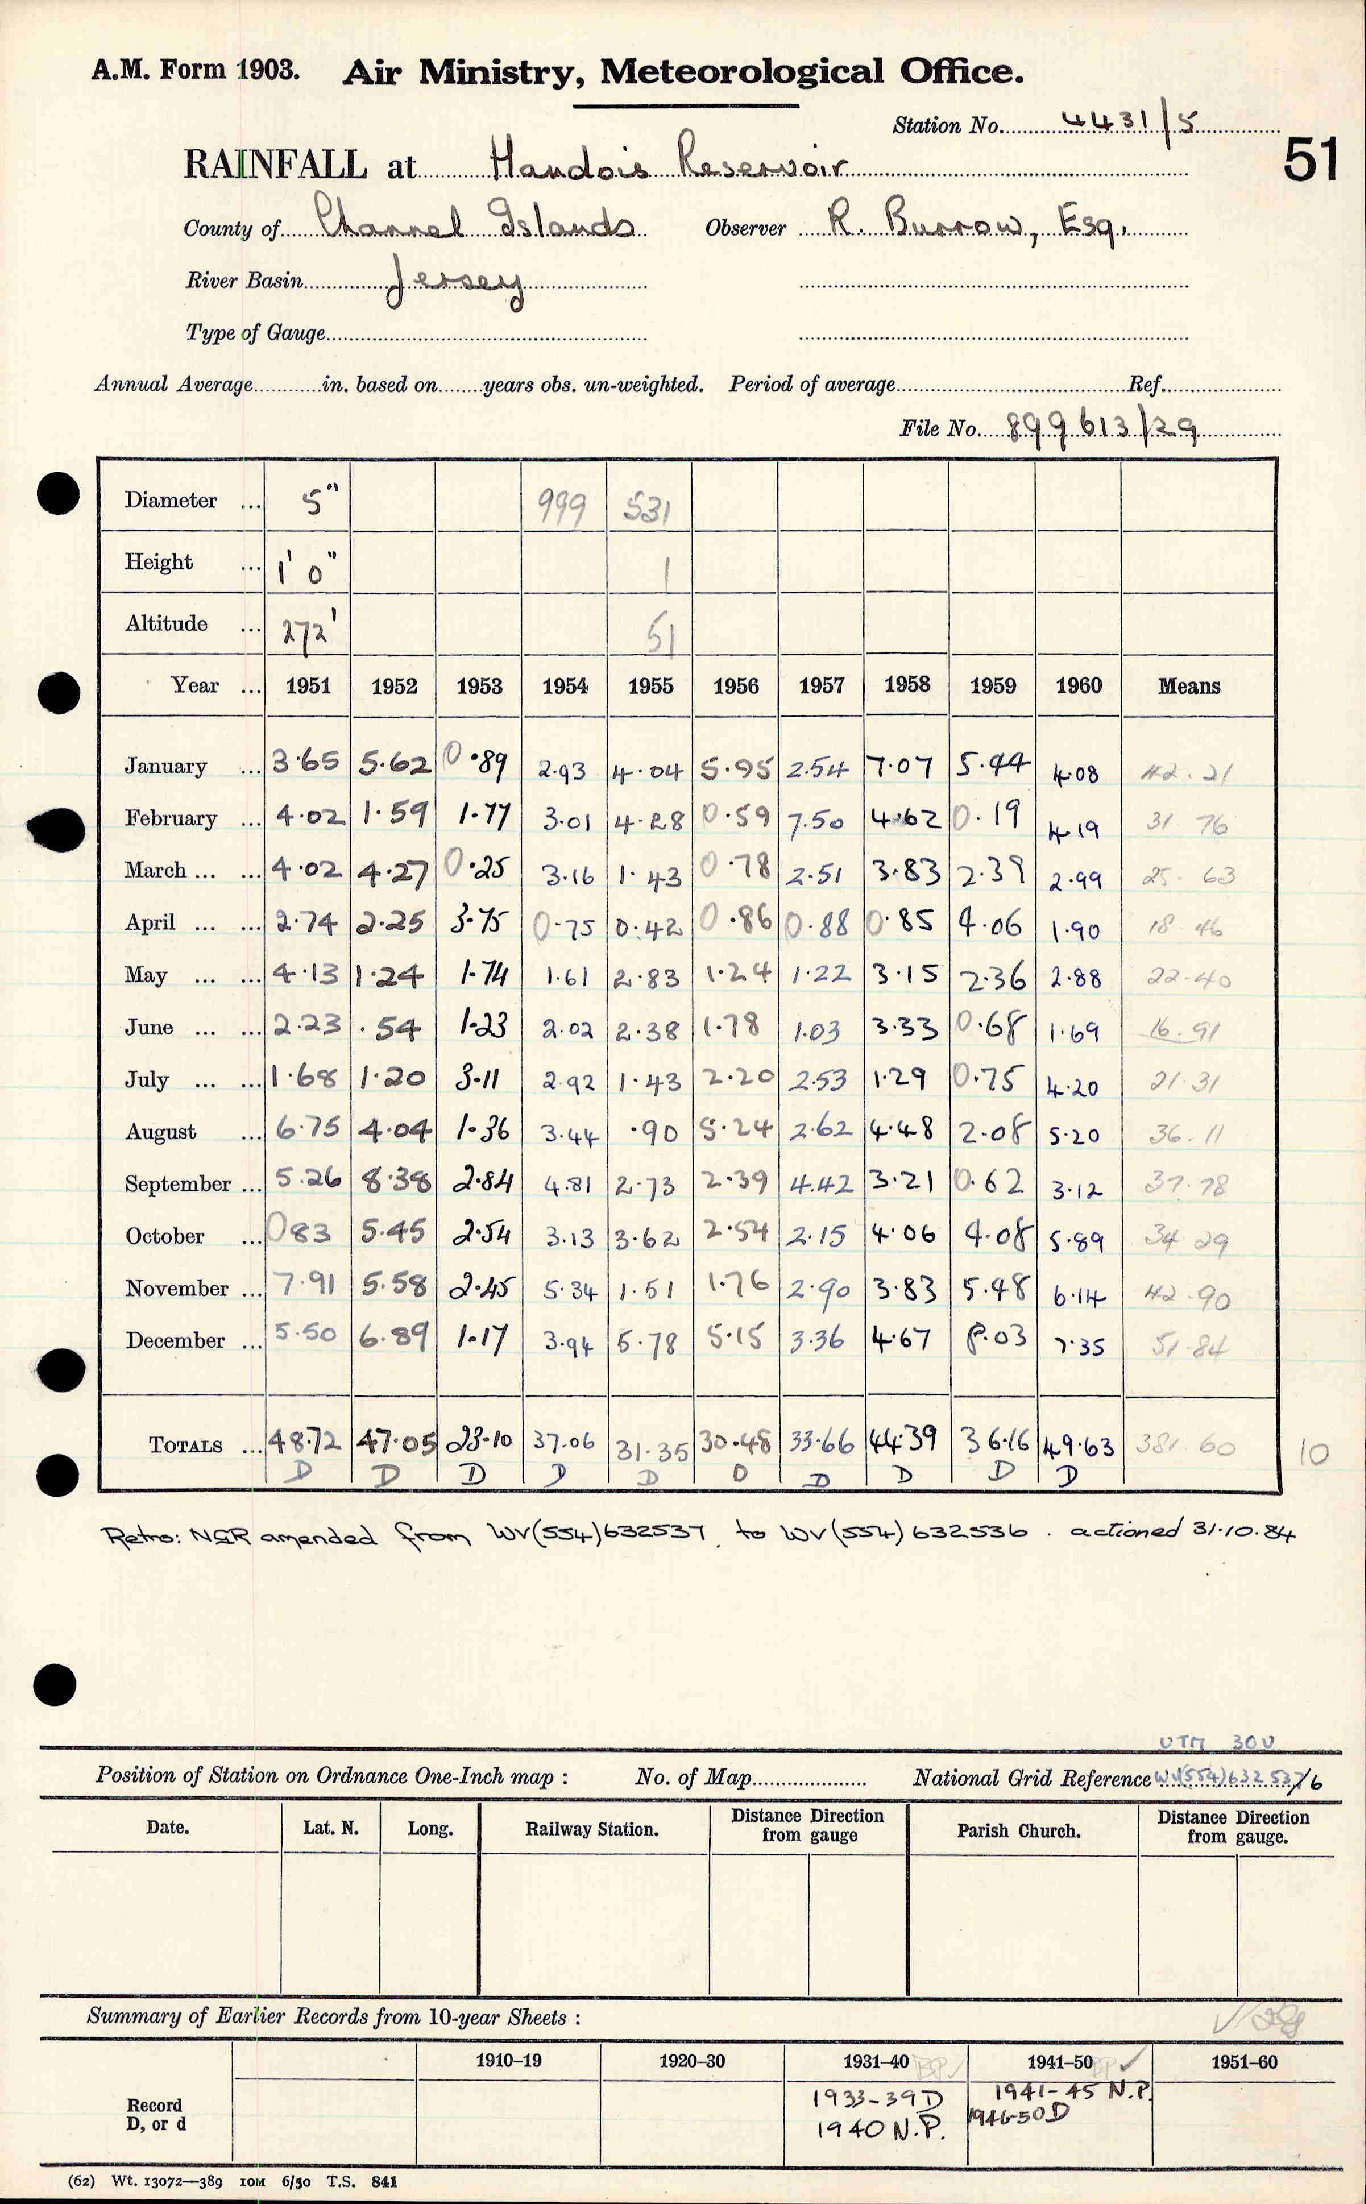 A.M. Form 1903. Air Ministry, Meteorological Office.
Station No. 4431/5
51
RAINFALL at Handois Reservoir
County of Channel Islands Observer R. Burrow, Esq.
River Basin Jersey
Type of Gauge
Annual Average in. based on years obs. un-weighted. Period of average Ref.
File No. 899613/29
Diameter ... 5" 999 531
Height ... 1' 0" 1
Altitude ... 272' 51
Year ... 1951 1952 1953 1954 1955 1956 1957 1958 1959 1960 Means
January ... 3.65 5.62 0.89 2.93 4.04 5.95 2.54 7.07 5.44 4.08 42.21
February ... 4.02 1.59 1.77 3.01 4.28 0.59 7.50 4.62 0.19 4.19 31 76
March ... ... 4.02 4.27 0.25 3.16 1.43 0.78 2.51 3.83 2.39 2.99 25. 63
April ... ... 2.74 2.25 3.75 0.75 0.42 0.86 0.88 0.85 4.06 1.90 18 46
May ... ... 4.13 1.24 1.74 1.61 2.83 1.24 1.22 3.15 2.36 2.88 22.40
June ... ... 2.23 .54 1.23 2.02 2.38 1.78 1.03 3.33 0.68 1.69 16.91
July ... ... 1.68 1.20 3.11 2.92 1.43 2.20 2.53 1.29 0.75 4.20 21.31
August ... 6.75 4.04 1.36 3.44 .90 5.24 2.62 4.48 2.08 5.20 36.11
September ... 5.26 8.38 2.84 4.81 2.73 2.39 4.42 3.21 0.62 3.12 37.78
October ... 083 5.45 2.54 3.13 3.62 2.54 2.15 4.06 4.08 5.89 34 29
November ... 7.91 5.58 2.45 5.34 1.51 1.76 2.90 3.83 5.48 6.14 42.90
December ... 5.50 6.89 1.17 3.94 5.78 5.15 3.36 4.67 8.03 7.35 51.84
TOTALS ... 48.72 47.05 23.10 37.06 31.35 30.48 33.66 44.39 36.16 49.63 381.60 10
D D D D D D D D D D
Retro: NGR amended from WV(554)632537 to WV(554)632536. actioned 31.10.84
UTM 30U
Position of Station on Ordnance One-Inch map : No. of Map National Grid Reference WV(554)632 537/6
Date. Lat. N. Long. Railway Station. Distance Direction from gauge Parish Church. Distance Direction from gauge.
Summary of Earlier Records from 10-year Sheets :
1910–19 1920–30 1931–40 BP ✓ 1941–50 BP ✓ 1951–60
Record D, or d
1933-39D 1941-45 N.P.
1940 N.P. 1946-50D
(62) Wt. 13072—389 10M 6/50 T.S. 841